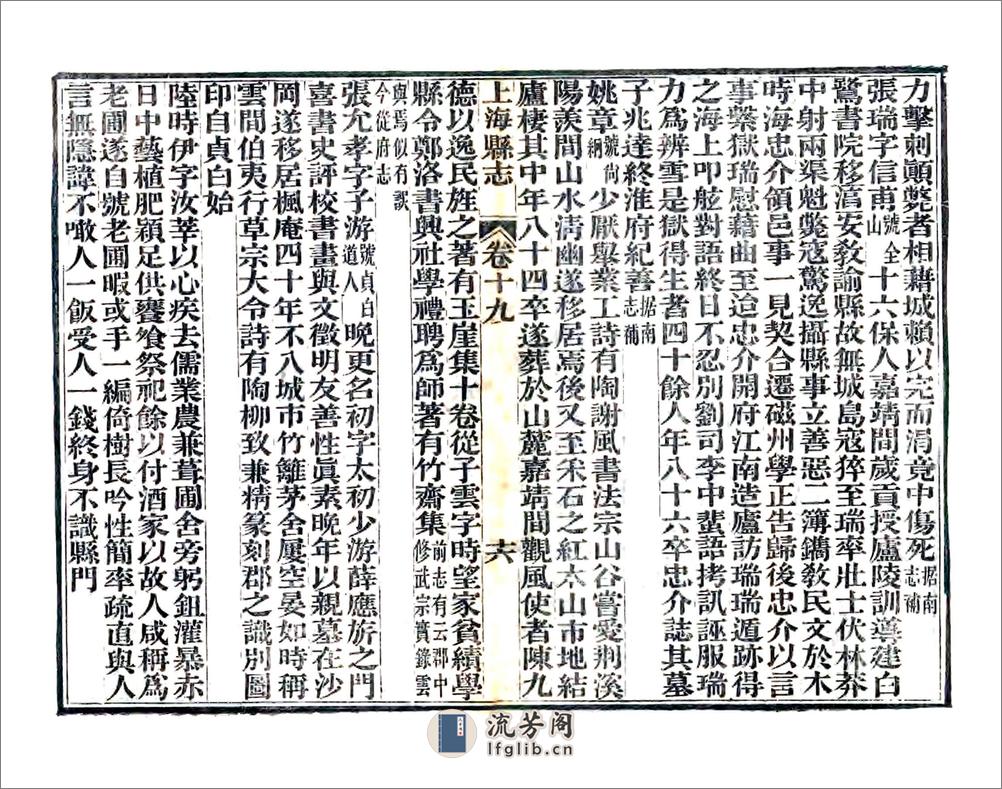 力擊刺顛斃者相藉城賴以完而涓竟中傷死据南志補
張瑞字信甫號全山十六保人嘉靖間歲貢授廬陵訓導建白
鷺書院移滆安教諭縣故無城島寇猝至瑞率壯士伏林莽
中射兩渠魁斃寇驚逸攝縣事立善惡二簿鐫敎民文於木
時海忠介領邑事一見契合遷磁州學正告歸後忠介以言
事繫獄瑞慰藉曲至迨忠介開府江南造廬訪瑞瑞遁跡得
之海上叩舷對語終日不忍別劉司李中蜚語拷訊誣服瑞
力爲辨雪是獄得生者四十餘人年八十六卒忠介誌其墓
子兆達終淮府紀善据南志補
姚章號尚綱少厭舉業工詩有陶謝風書法宗山谷嘗愛荆溪
陽羨間山水淸幽遂移居焉後又至禾石之紅太山市地結
廬棲其中年八十四卒遂葬於山麓嘉靖間觀風使者陳九
上海縣志 卷十九 六
德以逸民旌之著有玉崖集十卷從子雲字時望家貧績學
縣令鄭洛書興社學禮聘爲師著有竹齋集前志有云郡中修武宗實錄雲
與焉似有誤今從府志
張允孝字子游號貞白道人晩更名初字太初少游薛應旂之門
喜書史評校書畫與文徵明友善性眞素晚年以親墓在沙
岡遂移居楓庵四十年不入城市竹籬茅舍屢空晏如時稱
雲間伯夷行草宗大令詩有陶柳致兼精篆刻郡之識別圖
印自貞白始
陸時伊字汝莘以心疾去儒業農兼葺圃舍旁躬鉏灌暴赤
日中藝植肥穎足供饔飧祭祀餘以付酒家以故人咸稱爲
老圃遂自號老圃暇或手一編倚樹長吟性簡率疏直與人
言無隱諱不噉人一飯受人一錢終身不識縣門
流芳阁
lfglib.cn